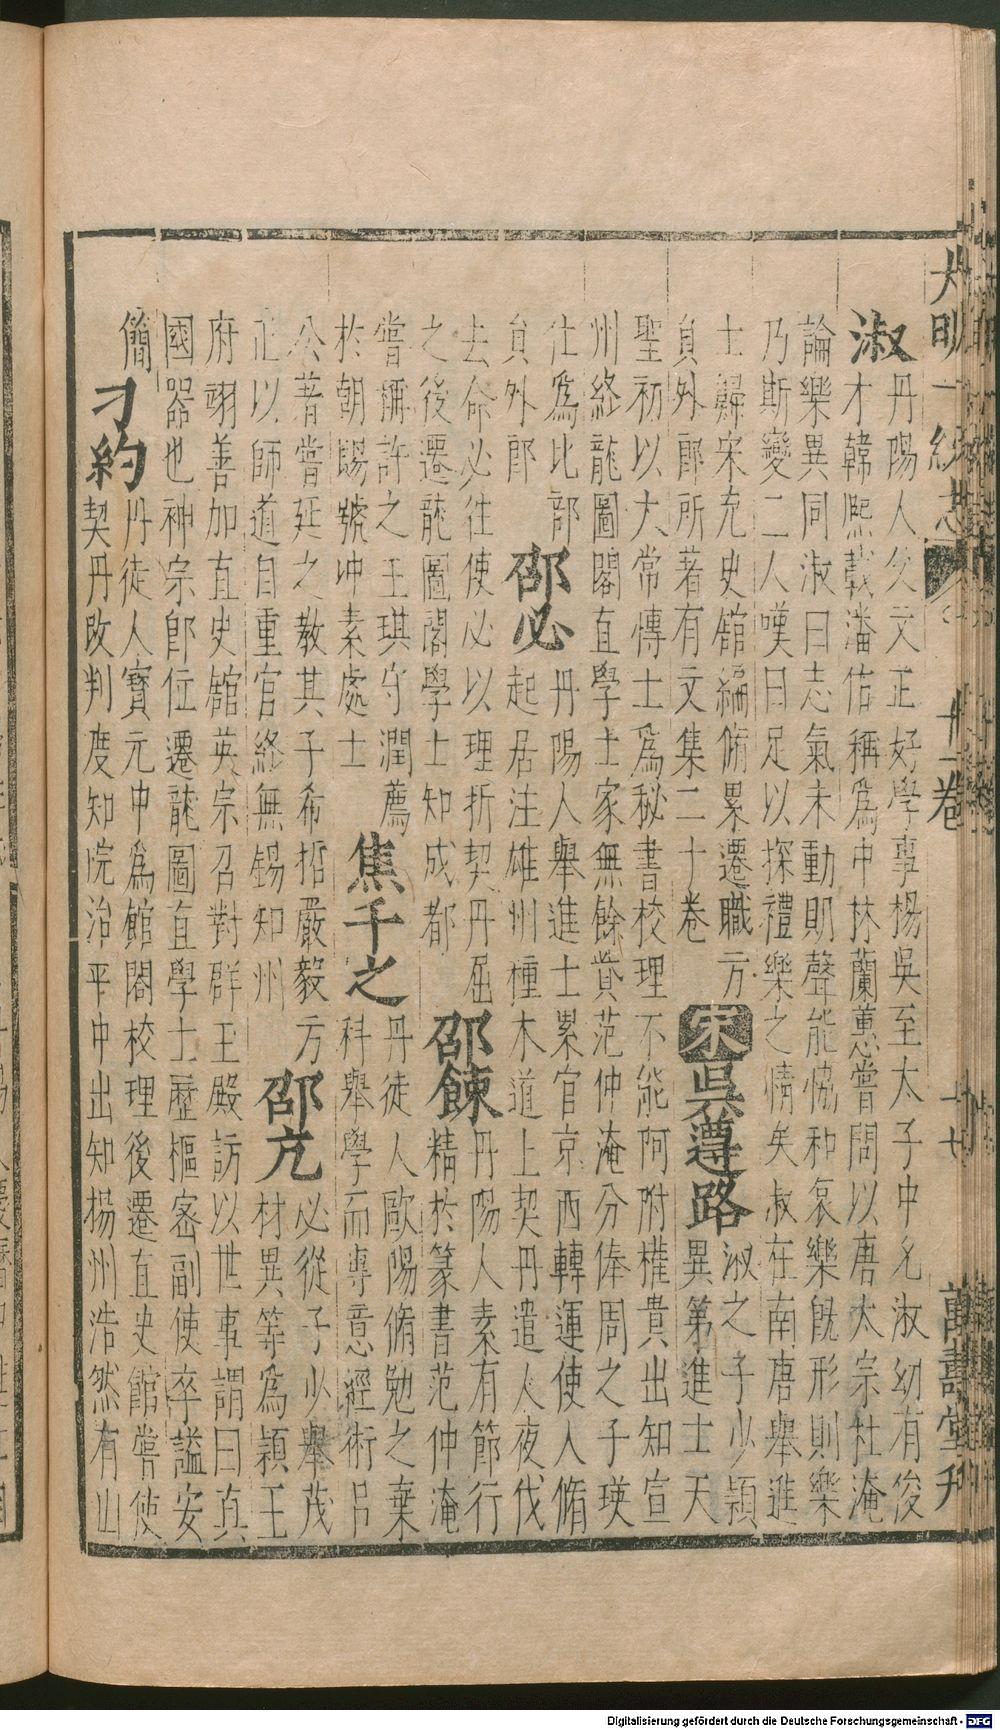 大明一統志 十一卷 十七 萬壽堂刋
淑
丹陽人父文正好學事楊吳至太子中允淑幼有俊
才韓熙載潘佑稱爲中林蘭蕙嘗問以唐太宗杜淹
論樂異同淑曰志氣未動則聲能恊和哀樂旣形則樂
乃斯變二人嘆曰足以探禮樂之情矣叔在南唐舉進
士歸宋充史館編脩累遷職方
貟外郎所著有文集二十卷
宋
吳遵路
淑之子少頴
異第進士天
聖初以大常博士爲秘書校理不能阿附權貴出知宣
州終龍圖閣直學士家無餘貲范仲淹分俸周之子瑛
仕爲比部
貟外郎
邵必
丹陽人舉進士累官京西轉運使入脩
起居注雄州種木道上契丹遣人夜伐
去命必往使必以理折契丹屈
之後遷龍圖閣學士知成都
邵餗
丹陽人素有節行
精於篆書范仲淹
嘗稱許之王琪守潤薦
於朝賜號冲素處士
焦千之
丹徒人歐陽脩勉之棄
科舉學而專意經術呂
公著嘗延之教其子希哲嚴毅方
正以師道自重官終無錫知州
邵亢
必從子少舉茂
材異等爲頴王
府翊善加直史館英宗召對群玉殿訪以世事謂曰真
國器也神宗卽位遷龍圖直學士歷樞密副使卒謚安
簡
刁約
丹徒人寶元中爲館閣校理後遷直史館嘗使
契丹改判度知院治平中出知揚州浩然有山
Digitalisierung gefördert durch die Deutsche Forschungsgemeinschaft - DFG